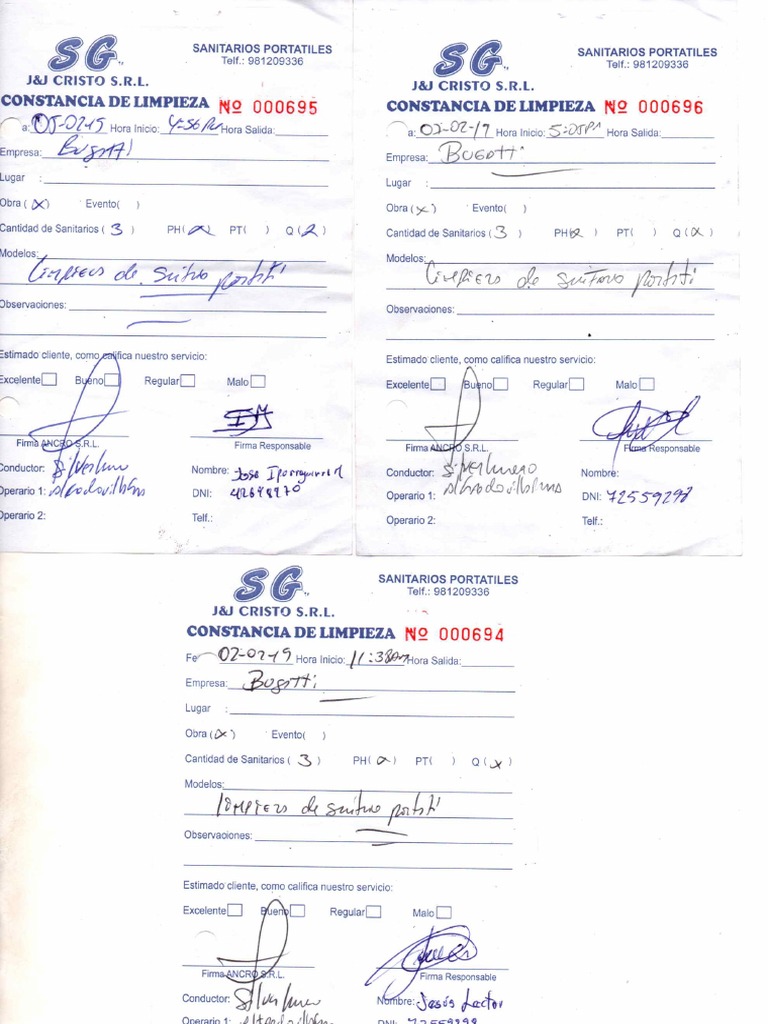 SG
SANITARIOS PORTATILES
Telf.: 981209336
J&J CRISTO S.R.L.
CONSTANCIA DE LIMPIEZA Nº 000695
a: 05-02-19 Hora Inicio: 4-56 PM Hora Salida:
Empresa: Bugatti
Lugar :
Obra (x) Evento( )
Cantidad de Sanitarios ( 3 ) PH( ) PT( ) Q( )
Modelos:
Limpieza de portati
Observaciones:
Estimado cliente, como califica nuestro servicio:
Excelente Bueno Regular Malo
Firma ANCRO S.R.L. Firma Responsable
Conductor: Nombre: Jose
Operario 1: DNI:
Operario 2: Telf.:
SG
SANITARIOS PORTATILES
Telf.: 981209336
J&J CRISTO S.R.L.
CONSTANCIA DE LIMPIEZA Nº 000696
a: 05-02-19 Hora Inicio: 5:05PM Hora Salida:
Empresa: BUGATTI
Lugar :
Obra (x) Evento( )
Cantidad de Sanitarios ( 3 ) PH( ) PT( ) Q( )
Modelos:
Limpieza de portati
Observaciones:
Estimado cliente, como califica nuestro servicio:
Excelente Bueno Regular Malo
Firma ANCRO S.R.L. Firma Responsable
Conductor: Nombre:
Operario 1: DNI: 72559298
Operario 2: Telf.:
SG
SANITARIOS PORTATILES
Telf.: 981209336
J&J CRISTO S.R.L.
CONSTANCIA DE LIMPIEZA Nº 000694
Fe 02-02-19 Hora Inicio: 11:38AM Hora Salida:
Empresa: Bugatti
Lugar :
Obra (x) Evento( )
Cantidad de Sanitarios ( 3 ) PH( ) PT( ) Q(x)
Modelos:
Limpieza de portati
Observaciones:
Estimado cliente, como califica nuestro servicio:
Excelente Bueno Regular Malo
Firma ANCRO S.R.L. Firma Responsable
Conductor: Nombre: Jesús
Operario 1: DNI: 72559298